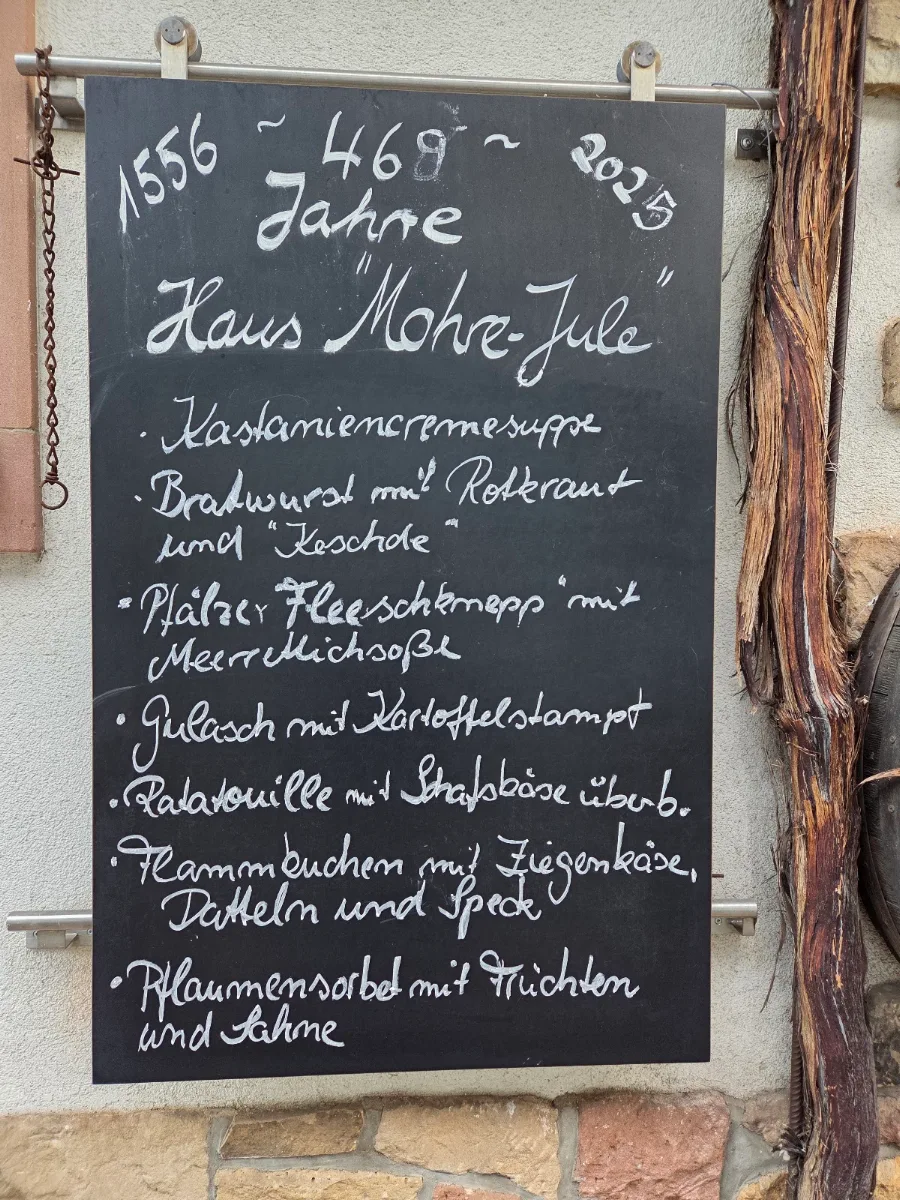 1556 ~ 469 ~ 2025
Jahre
Haus "Mohre-Jule"
· Kastaniencremesuppe
· Bratwurst mit Rotkraut
und "Keschde"
· Pfälzer "Fleeschknepp" mit
Meerrettichsoße
· Gulasch mit Kartoffelstampf
· Ratatouille mit Schafskäse überb.
· Flammkuchen mit Ziegenkäse,
Datteln und Speck
· Pflaumensorbet mit Früchten
und Sahne